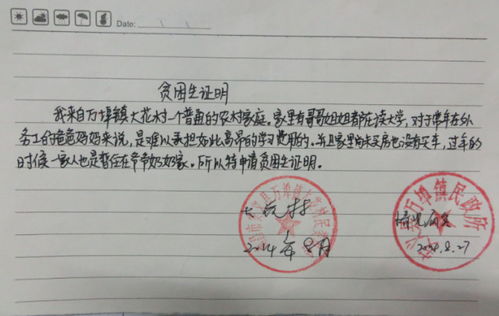 Date:
贫困生证明
我来自万埠镇大花村一个普通的农村家庭。家里有哥哥姐姐都在读大学,对于常年在外
务工的爸爸妈妈来说,是难以承担如此高昂的学习费用的。并且家里尚未买房也没有买车,过年的
时候一家人也是暂住在爷爷奶奶家。所以特申请贫困生证明。
情况属实
2014年8月
2014.8.27
万埠镇民政所